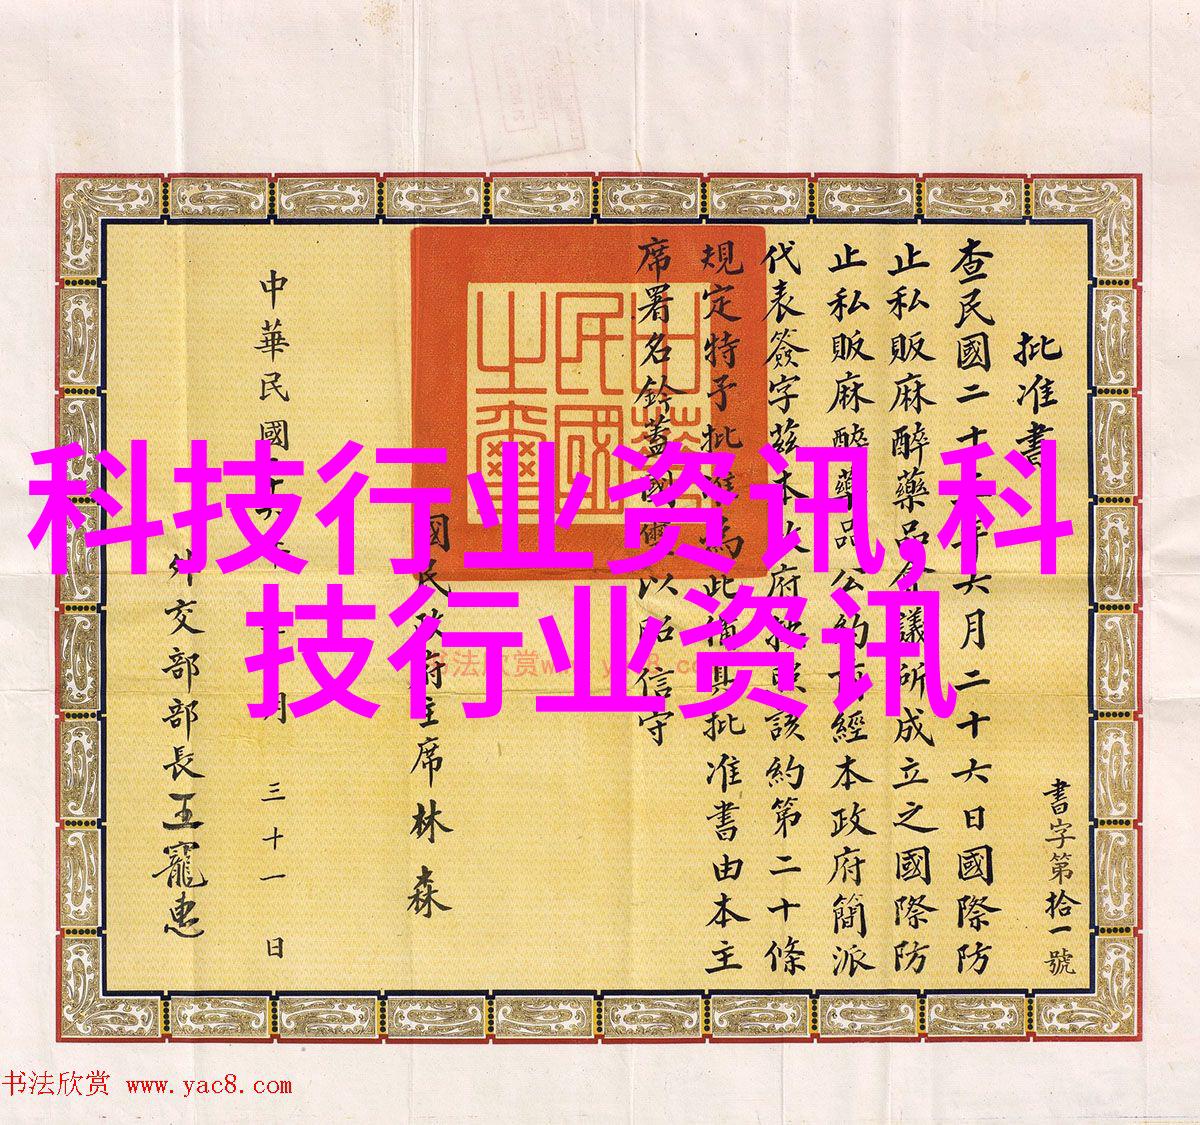 批准書
書字第拾一號
查民國二十年六月二十六日國際防
止私販麻醉藥品會議所成立之國際防
止私販麻醉藥品公約經本政府簡派
代表簽字茲本政府按照該約第二十條
規定特予批准為此備具批准書由本主
席署名鈐蓋國璽以昭信守
國民政府主席林森
中華民國年月三十一日
外交部部長王寵惠
中華民國之璽
科技行业资讯,科
技行业资讯
书法欣赏www.yac8.com
书法欣赏 www.yac8.com